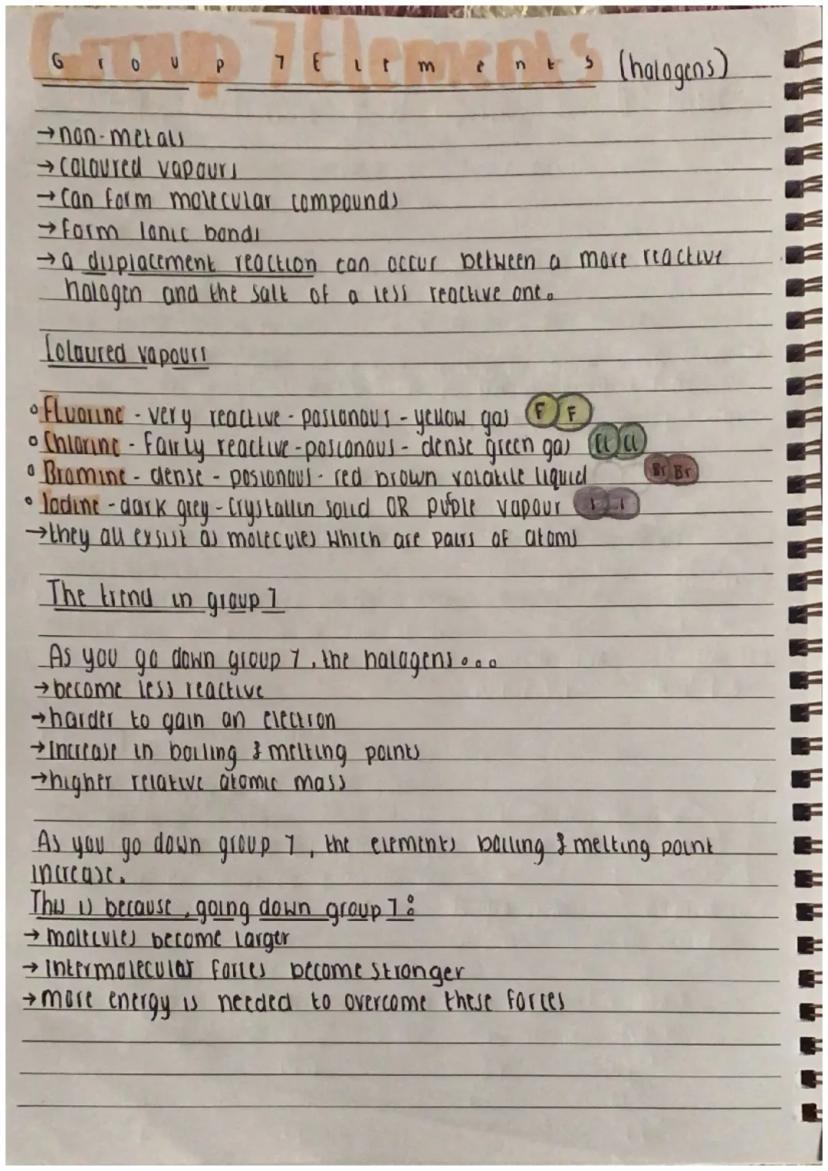 Group 7 Elements (halogens)
→non-metals
→coloured vapours
→can form molecular compounds
→form ionic bonds
→a displacement reaction can occur between a more reactive
halogen and the salt of a less reactive one.
Coloured vapours
Fluorine - very reactive - posionous - yellow gas F F
Chlorine - fairly reactive - posionous - dense green gas Cl Cl
Bromine - dense - posionous - red brown volatile liquid Br Br
Iodine - dark grey - crystallin solid OR puple vapour I I
→they all exsist as molecules which are pairs of atoms
The trend in group 7
As you go down group 7, the halogens...
→become less reactive
→harder to gain an electron
→increase in boiling & melting points
→higher relative atomic mass
As you go down group 7, the elements boiling & melting point
increase.
This is because, going down group 7:
→molecules become larger
→intermolecular forces become stronger
→more energy is needed to overcome these forces